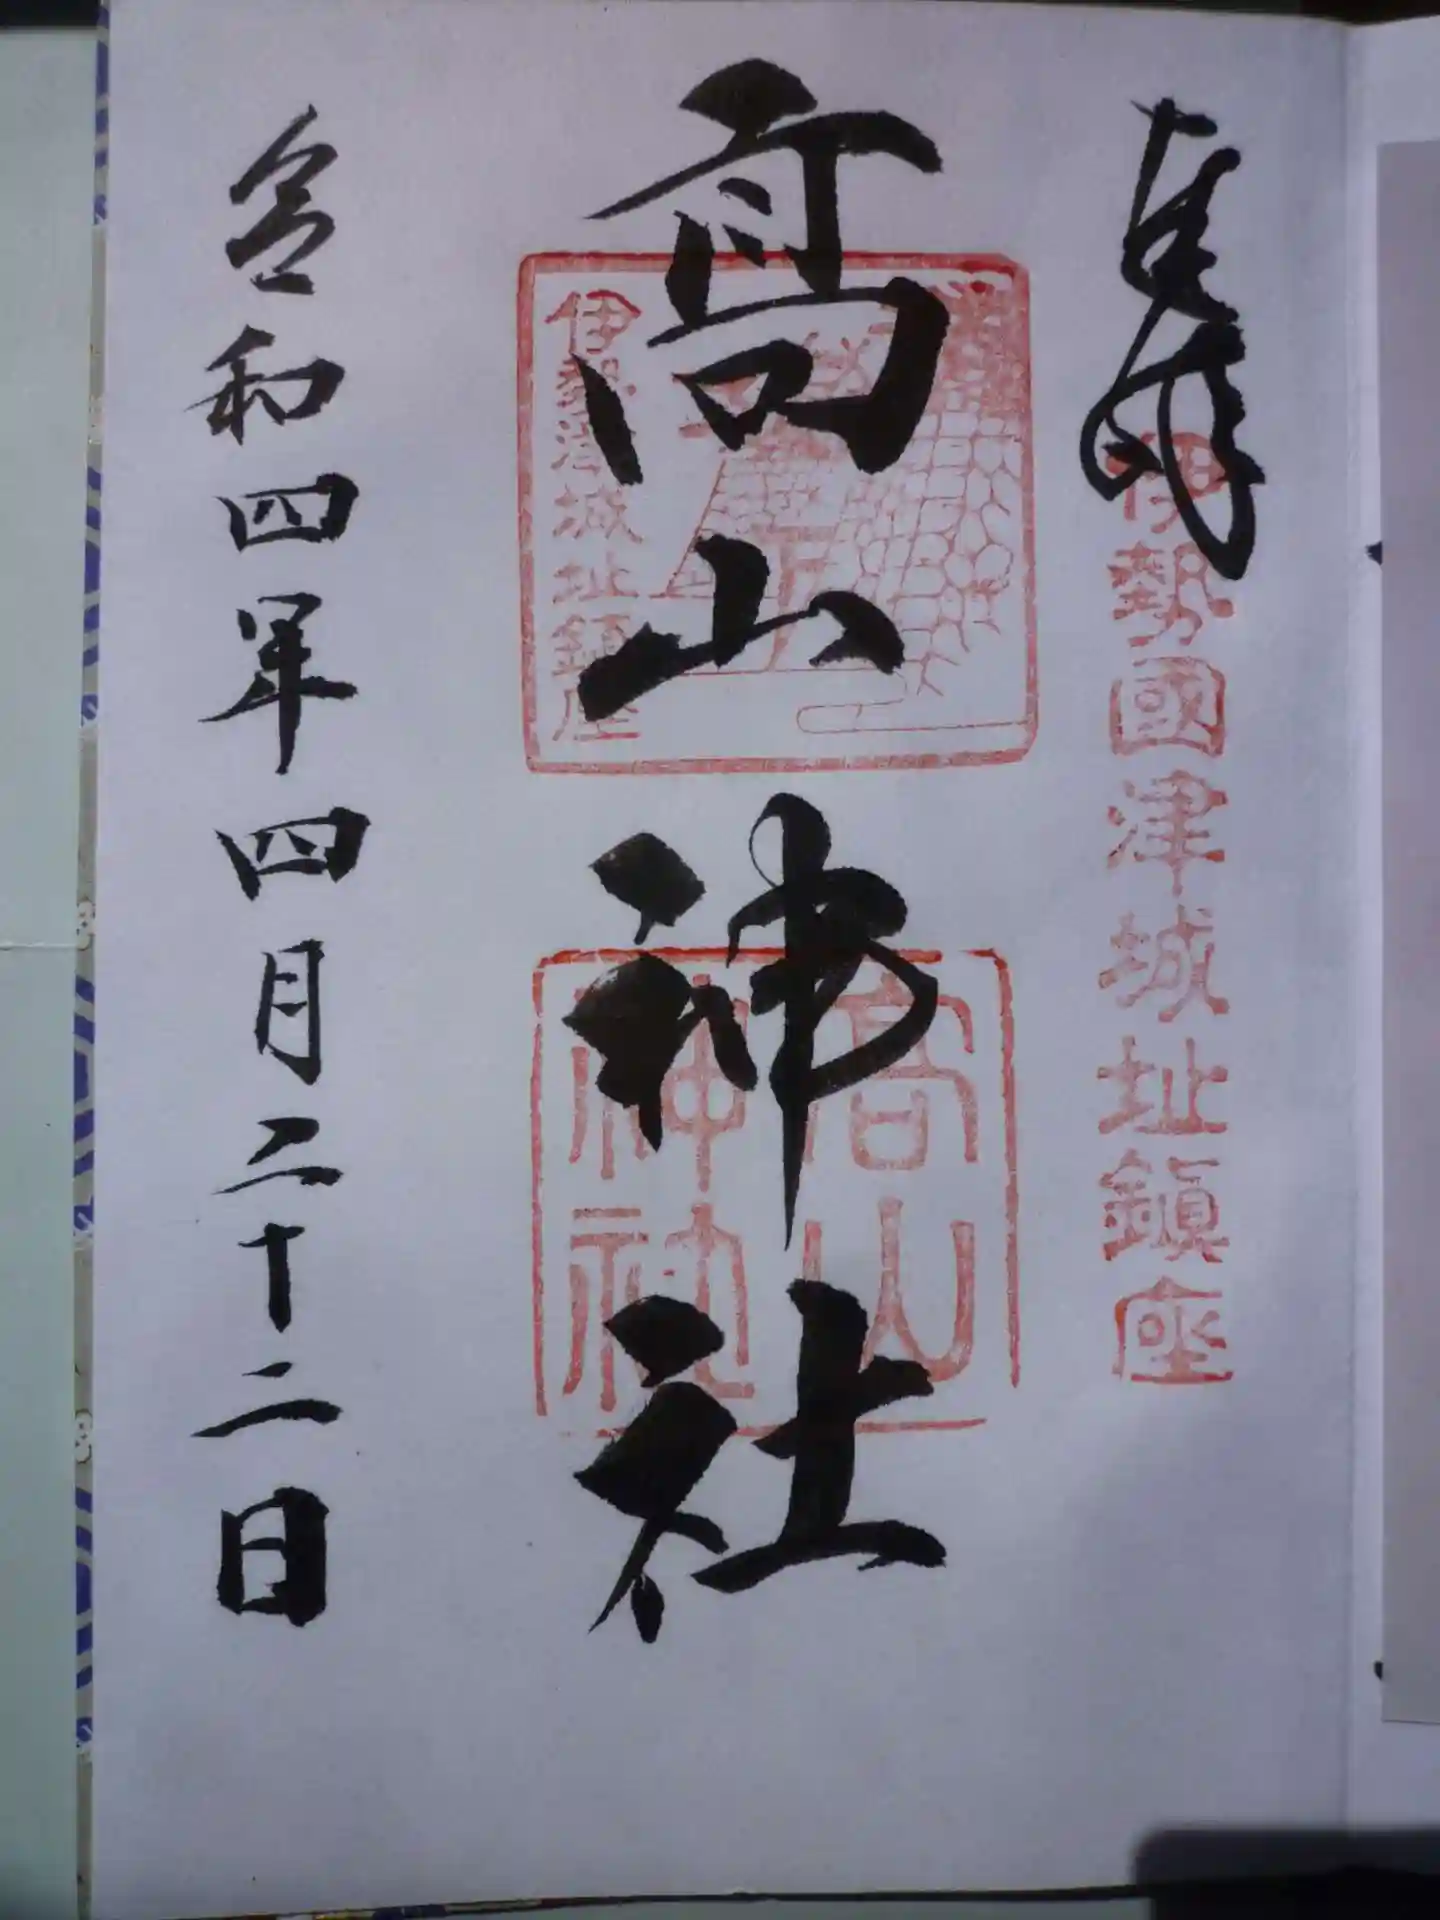 奉拝
伊勢國津城址鎮座
高山神社
伊勢津城址鎮座
高山
神社
令和四年四月二十二日